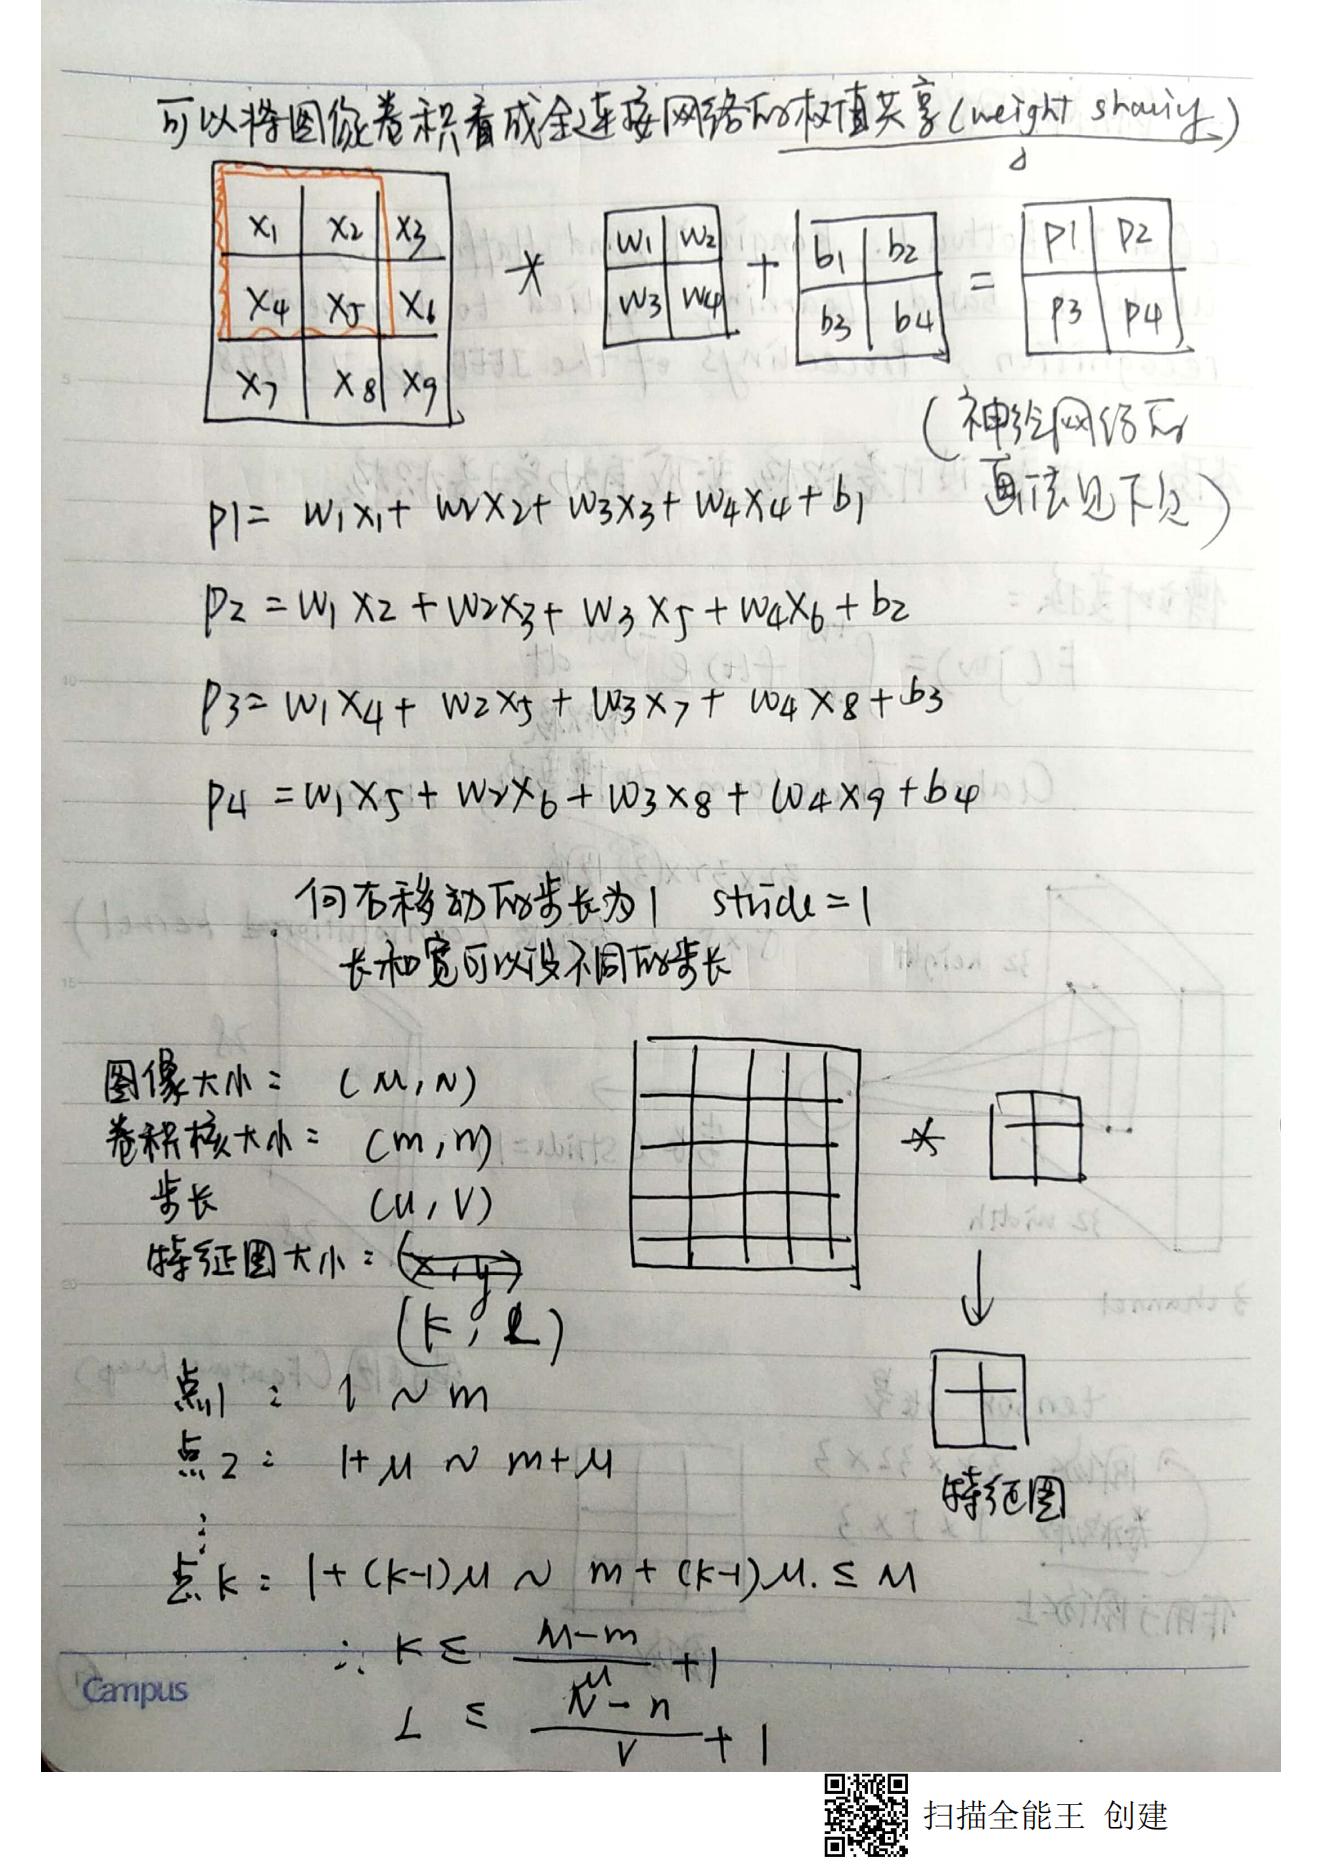 可以将图像卷积看成全连接网络的权值共享(weight sharing)
x1 x2 x3
x4 x5 x6
x7 x8 x9
*
w1 w2
w3 w4
+
b1 b2
b3 b4
=
p1 p2
p3 p4
(神经网络的
画法见下页)
p1= w1x1+ w2x2+ w3x3+ w4x4+b1
p2 =w1x2+w2x3+ w3x5+w4x6+b2
p3= w1x4+ w2x5+ w3x7+ w4x8+b3
p4 =w1x5+ w2x6+w3x8+ w4x9+b4
向右移动的步长为1 stride=1
长和宽可以设不同的步长
图像大小: (M,N)
卷积核大小: (m,n)
步长 (u,v)
特征图大小: (x,y)
(K,L)
*
特征图
点1: 1~m
点2: 1+u~m+u
点K: 1+(K-1)u~m+(K-1)u.≤M
∴ K≤ (M-m)/u +1
L ≤ (N-n)/v +1
Campus
扫描全能王 创建